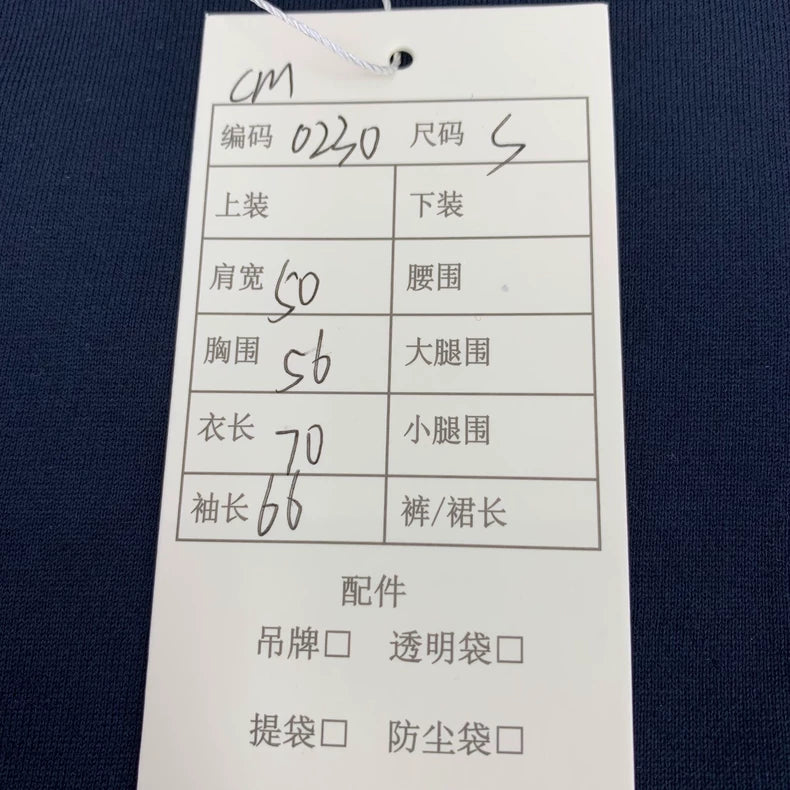 CM
编码 0230 尺码 S
上装 下装
肩宽 50 腰围
胸围 56 大腿围
衣长 70 小腿围
袖长 66 裤/裙长
配件
吊牌□ 透明袋□
提袋□ 防尘袋□